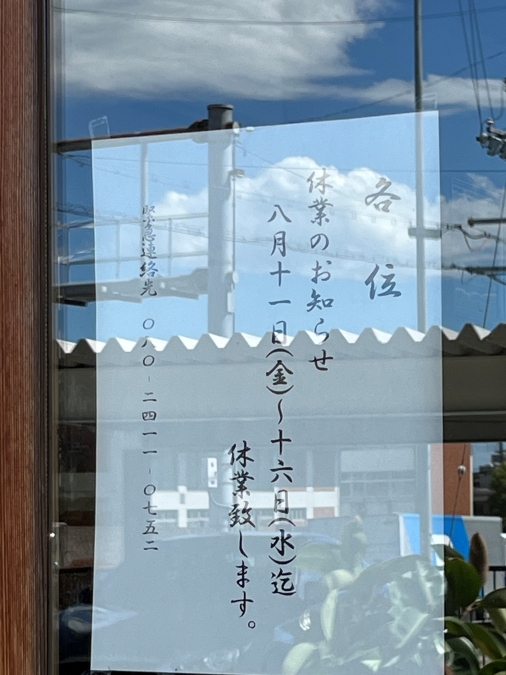 各位
休業のお知らせ
八月十一日(金)～十六日(水)迄
休業致します。
緊急連絡先 〇八〇-二四一一-〇七五二